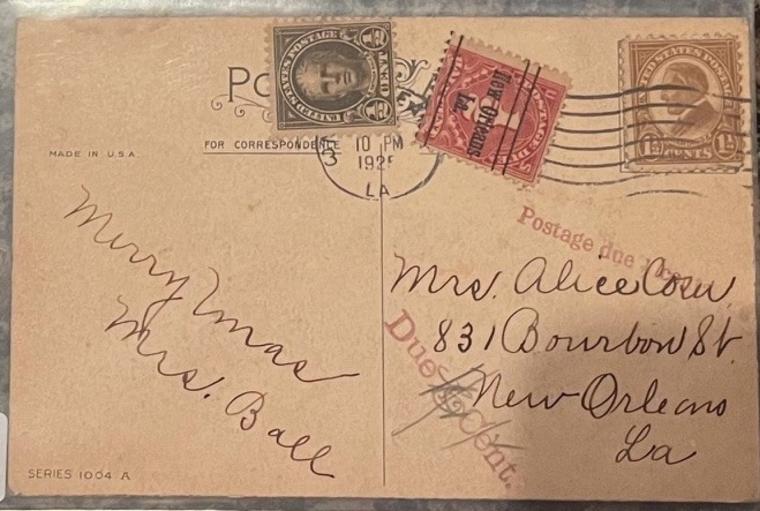 UNITED STATES POSTAGE
½
½
UNITED STATES POSTAGE
1½ CENTS 1½
New Orleans
La.
MADE IN U.S.A.
FOR CORRESPONDENCE
10 PM
LA
Postage due 1
Mrs. Alice
831 Bourbon St.
New Orleans
La
Due
Cent.
Merry Xmas
Mrs. Ball
SERIES 1004 A